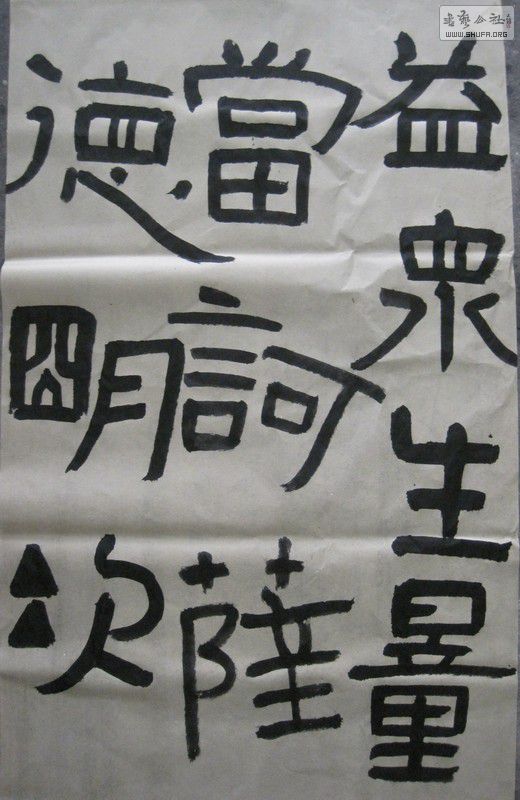 益衆生量
當訶薩
德明次
書藝公社
WWW.SHUFA.ORG